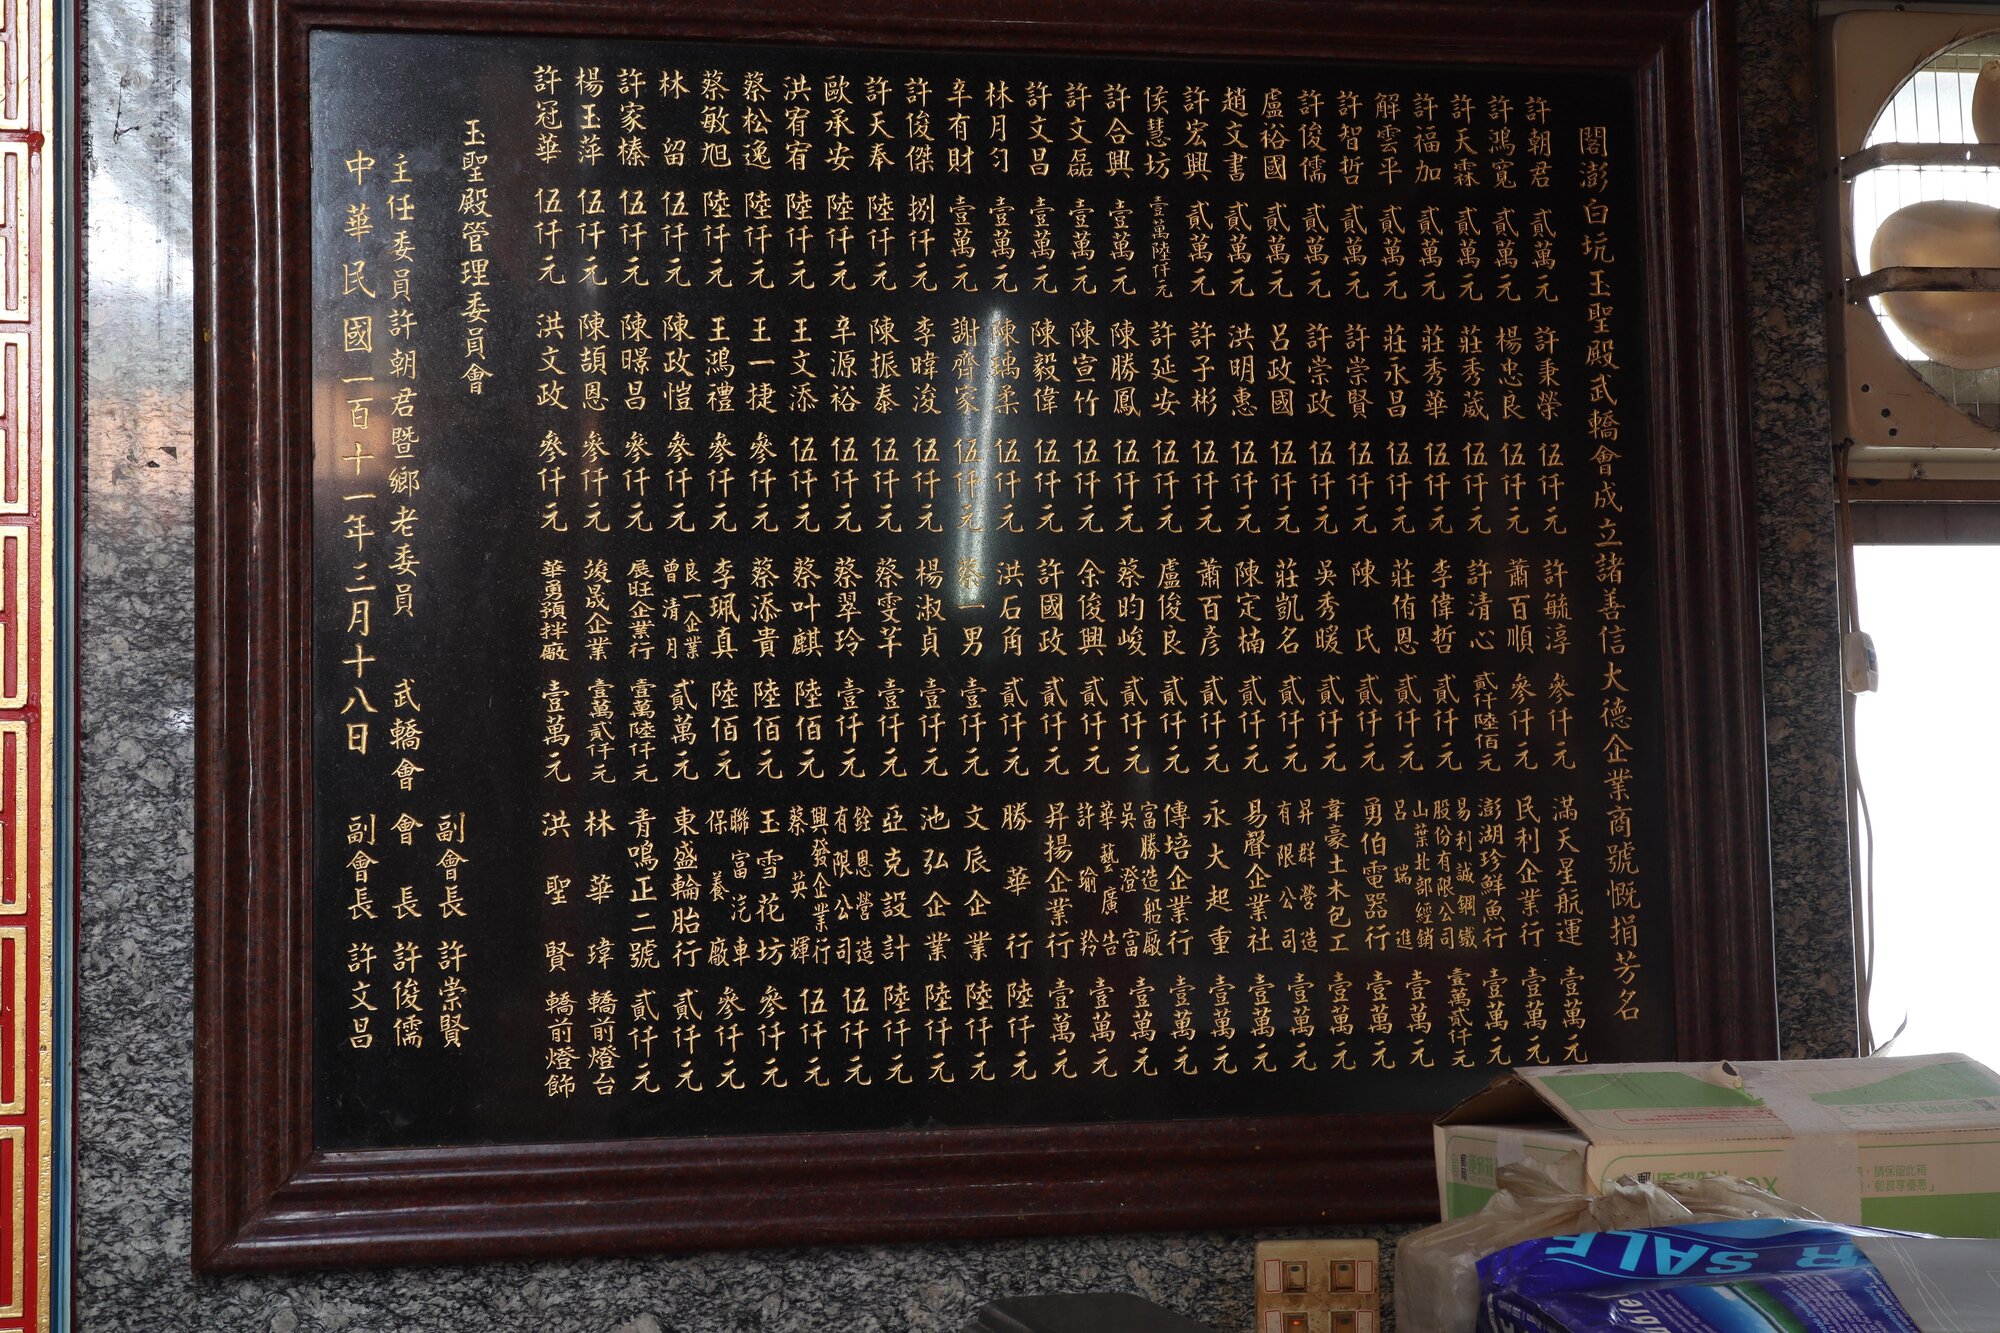 閤澎白坑玉聖殿武轎會成立諸善信大德企業商號慨捐芳名
許朝君 貳萬元 許秉榮 伍仟元 許毓淳 參仟元 滿天星航運 壹萬元
許鴻寬 貳萬元 楊忠良 伍仟元 蕭百順 參仟元 民利企業行 壹萬元
許天霖 貳萬元 莊秀葳 伍仟元 許清心 貳仟陸佰元 澎湖珍鮮魚行 壹萬元
許福加 貳萬元 莊秀華 伍仟元 李偉哲 貳仟元 易利誠鋼鐵股份有限公司 壹萬貳仟元
解雲平 貳萬元 莊永昌 伍仟元 莊侑恩 貳仟元 山葉北部經銷 呂瑞進 壹萬元
許智哲 貳萬元 許崇賢 伍仟元 陳氏 貳仟元 勇伯電器行 壹萬元
許俊儒 貳萬元 許崇政 伍仟元 吳秀暖 貳仟元 韋豪土木包工 壹萬元
盧裕國 貳萬元 呂政國 伍仟元 莊凱名 貳仟元 昇群營造有限公司 壹萬元
趙文書 貳萬元 洪明惠 伍仟元 陳定楠 貳仟元 易聲企業社 壹萬元
許宏興 貳萬元 許子彬 伍仟元 蕭百彥 貳仟元 永大起重 壹萬元
侯慧坊 壹萬陸仟元 許延安 伍仟元 盧俊良 貳仟元 傳培企業行 壹萬元
許合興 壹萬元 陳勝鳳 伍仟元 蔡昀峻 貳仟元 富勝造船廠 吳澄富 壹萬元
許文磊 壹萬元 陳宣竹 伍仟元 余俊興 貳仟元 華藝廣告 許瑜羚 壹萬元
許文昌 壹萬元 陳毅偉 伍仟元 許國政 貳仟元 昇揚企業行 壹萬元
林月勻 壹萬元 陳瑀柔 伍仟元 洪石角 貳仟元 勝華行 陸仟元
辛有財 壹萬元 謝齊家 伍仟元 蔡一男 壹仟元 文辰企業 陸仟元
許俊傑 捌仟元 李暐浚 伍仟元 楊淑貞 壹仟元 池弘企業 陸仟元
許天奉 陸仟元 陳振泰 伍仟元 蔡雯芊 壹仟元 亞克設計 陸仟元
歐承安 陸仟元 辛源裕 伍仟元 蔡翠玲 壹仟元 銓恩營造有限公司 伍仟元
洪宥宥 陸仟元 王文添 伍仟元 蔡叶麒 陸佰元 興發企業行 蔡英輝 伍仟元
蔡松逸 陸仟元 王一捷 參仟元 蔡添貴 陸佰元 玉雪花坊 參仟元
蔡敏旭 陸仟元 王鴻禮 參仟元 李珮真 陸佰元 聯富汽車保養廠 參仟元
林留 伍仟元 陳政愷 參仟元 良一企業 曾清月 貳萬元 東盛輪胎行 貳仟元
許家榛 伍仟元 陳暻昌 參仟元 展旺企業行 壹萬陸仟元 青鳴正二號 貳仟元
楊玉萍 伍仟元 陳頡恩 參仟元 竣晟企業 壹萬貳仟元 林華瑋 轎前燈台
許冠華 伍仟元 洪文政 參仟元 華勇預拌廠 壹萬元 洪聖賢 轎前燈飾
玉聖殿管理委員會
主任委員許朝君暨鄉老委員
武轎會
副會長 許崇賢
會長 許俊儒
副會長 許文昌
中華民國一百十一年三月十八日
請保留此箱
郵資享優惠」
SALE